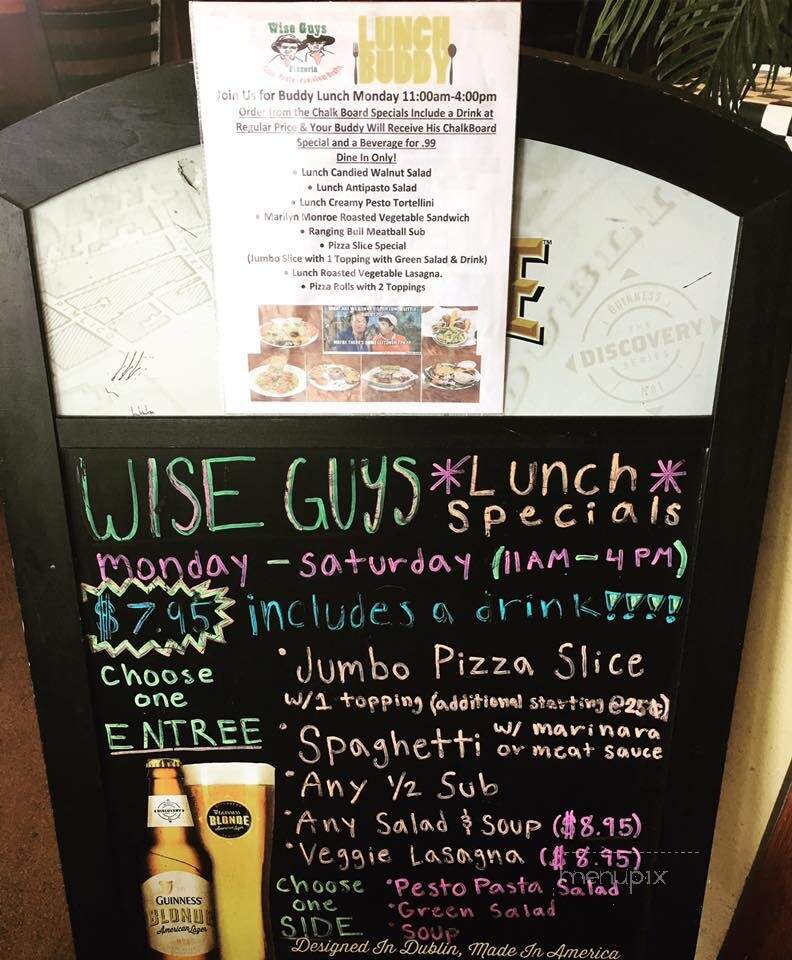 Wise Guys
Pizzeria
LUNCH
BUDDY
Join Us for Buddy Lunch Monday 11:00am-4:00pm
Order from the Chalk Board Specials Include a Drink at
Regular Price & Your Buddy Will Receive His ChalkBoard
Special and a Beverage for .99
Dine In Only!
• Lunch Candied Walnut Salad
• Lunch Antipasto Salad
• Lunch Creamy Pesto Tortellini
• Marilyn Monroe Roasted Vegetable Sandwich
• Ranging Bull Meatball Sub
• Pizza Slice Special
(Jumbo Slice with 1 Topping with Green Salad & Drink)
• Lunch Roasted Vegetable Lasagna.
• Pizza Rolls with 2 Toppings
E™
GUINNESS
THE
DISCOVERY
SERIES
Nº1
WISE GUYS *Lunch*
Specials
monday - saturday (11AM - 4 PM)
$7.95 includes a drink!!!!
Choose
one
ENTREE
• Jumbo Pizza Slice
w/1 topping (additional starting @ 25¢)
• Spaghetti w/ marinara
or meat sauce
• Any 1/2 Sub
• Any Salad & Soup ($8.95)
• Veggie Lasagna ($8.95)
choose
one
SIDE
• Pesto Pasta Salad
• Green Salad
• Soup
menupix
DISCOVERY
GUINNESS
BLONDE
American Lager
GUINNESS
BLONDE
American Lager
Designed In Dublin, Made In America